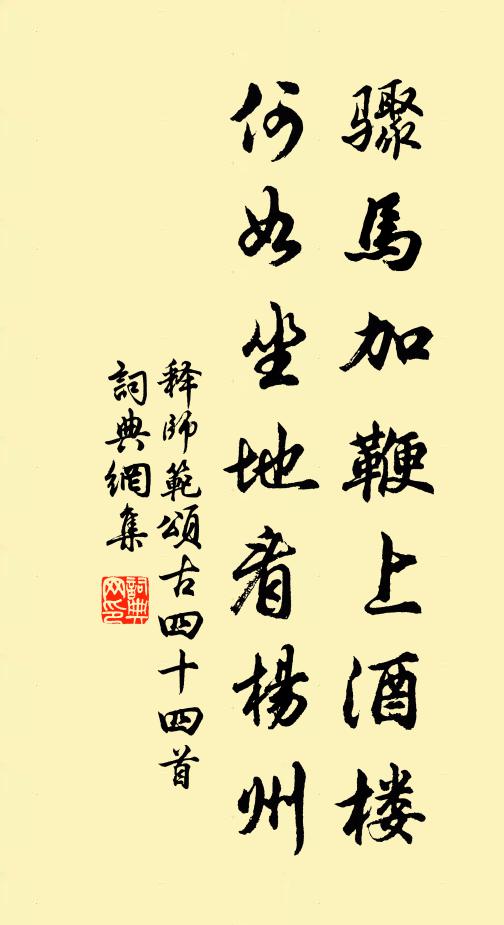 骤馬加鞭上酒楼
何如坐地看楊州
释師範頌古四十四首
詞典網集
詞典
网印